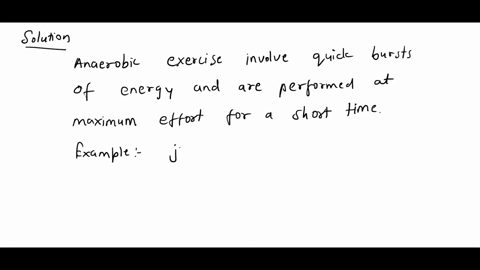 Solution
Anaerobic exercise involve quick bursts
of energy and are performed at
maximum effort for a short time.
Example:- j